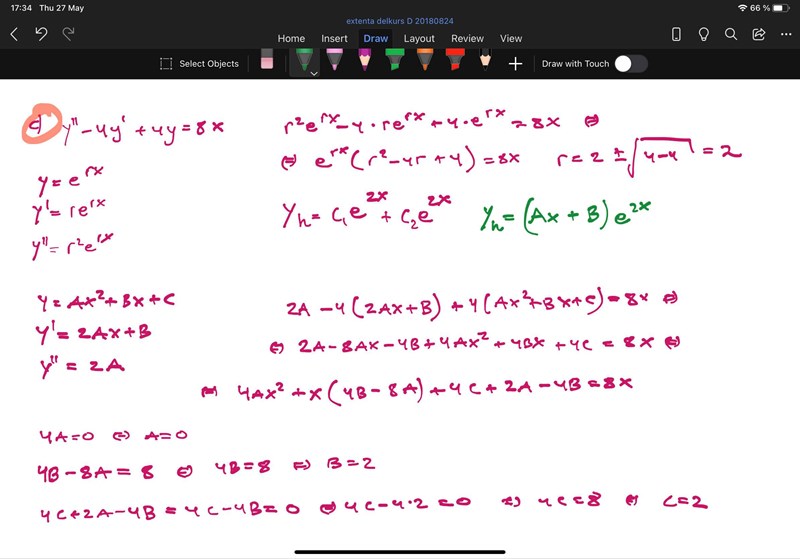 17:34 Thu 27 May 66 %
extenta delkurs D 20180824
Home Insert Draw Layout Review View
Select Objects Draw with Touch
c) y'' - 4y' + 4y = 8x r²e^{rx} - 4 · re^{rx} + 4 · e^{rx} = 8x ⇔
⇔ e^{rx}(r² - 4r + 4) = 8x r = 2 ± √(4-4) = 2
y = e^{rx}
y' = re^{rx}
y'' = r²e^{rx}
y_h = C₁e^{2x} + C₂e^{2x} y_h = (Ax + B)e^{2x}
y = Ax² + Bx + C 2A - 4(2Ax + B) + 4(Ax² + Bx + C) = 8x ⇔
y' = 2Ax + B ⇔ 2A - 8Ax - 4B + 4Ax² + 4Bx + 4C = 8x ⇔
y'' = 2A
⇔ 4Ax² + x(4B - 8A) + 4C + 2A - 4B = 8x
4A = 0 ⇔ A = 0
4B - 8A = 8 ⇔ 4B = 8 ⇔ B = 2
4C + 2A - 4B = 4C - 4B = 0 ⇔ 4C - 4·2 = 0 ⇔ 4C = 8 ⇔ C = 2